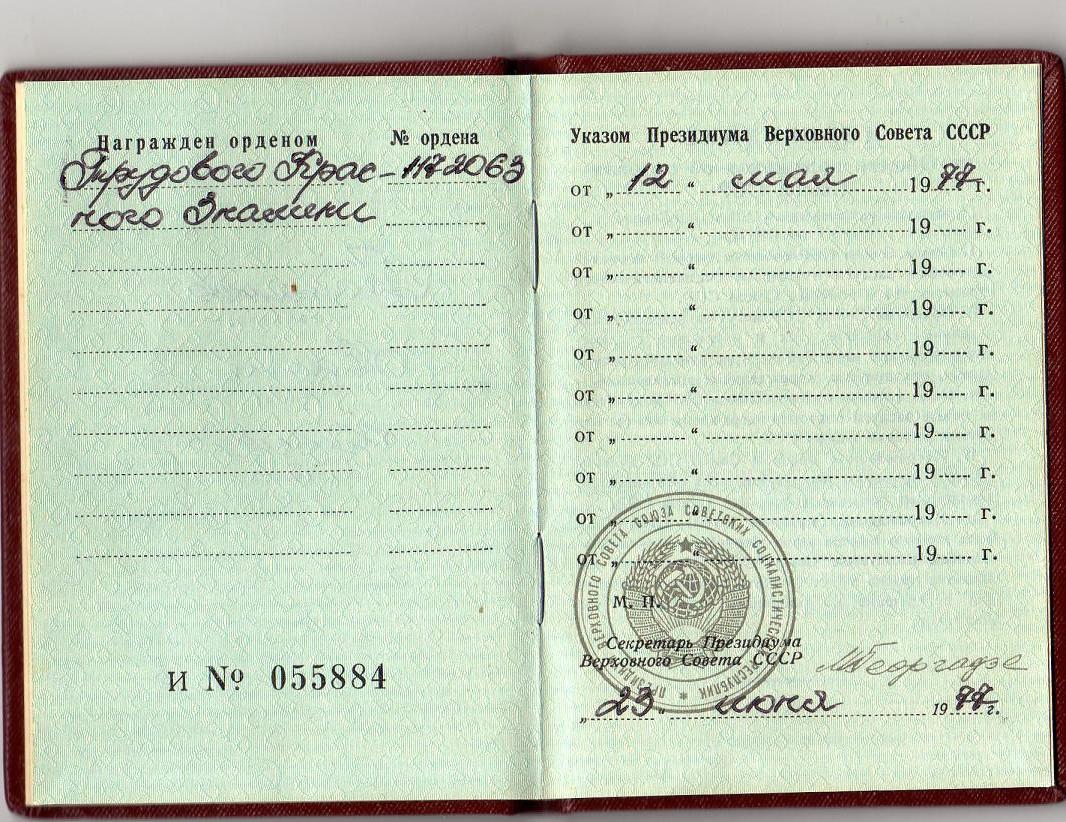 Награжден орденом № ордена
Трудового Крас- 1172063
ного Знамени
И № 055884
Указом Президиума Верховного Совета СССР
от „ 12 “ мая 1977 г.
от „ “ 19 г.
от „ “ 19 г.
от „ “ 19 г.
от „ “ 19 г.
от „ “ 19 г.
от „ “ 19 г.
от „ “ 19 г.
от „ “ 19 г.
от „ “ 19 г.
ПРЕЗИДИУМ ВЕРХОВНОГО СОВЕТА СОЮЗА СОВЕТСКИХ СОЦИАЛИСТИЧЕСКИХ РЕСПУБЛИК
М. П.
Секретарь Президиума
Верховного Совета СССР МГеоргадзе
„ 23 “ июня 1977 г.